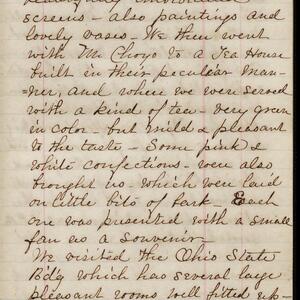 screens - also paintings and
lovely vases - We then went
with Mr Choyo to a Tea House
built in their peculear man-
=ner, and when we were served
with a kind of tea - very green
in color - but mild & pleasant
to the taste - Some pink &
white confections - were also
brought us - which were laid
on little bits of bark - Each
one was presented with a small
fan as a souvenir -
We visited the Ohio State
Bdg which has several large
pleasant rooms well fitted up -